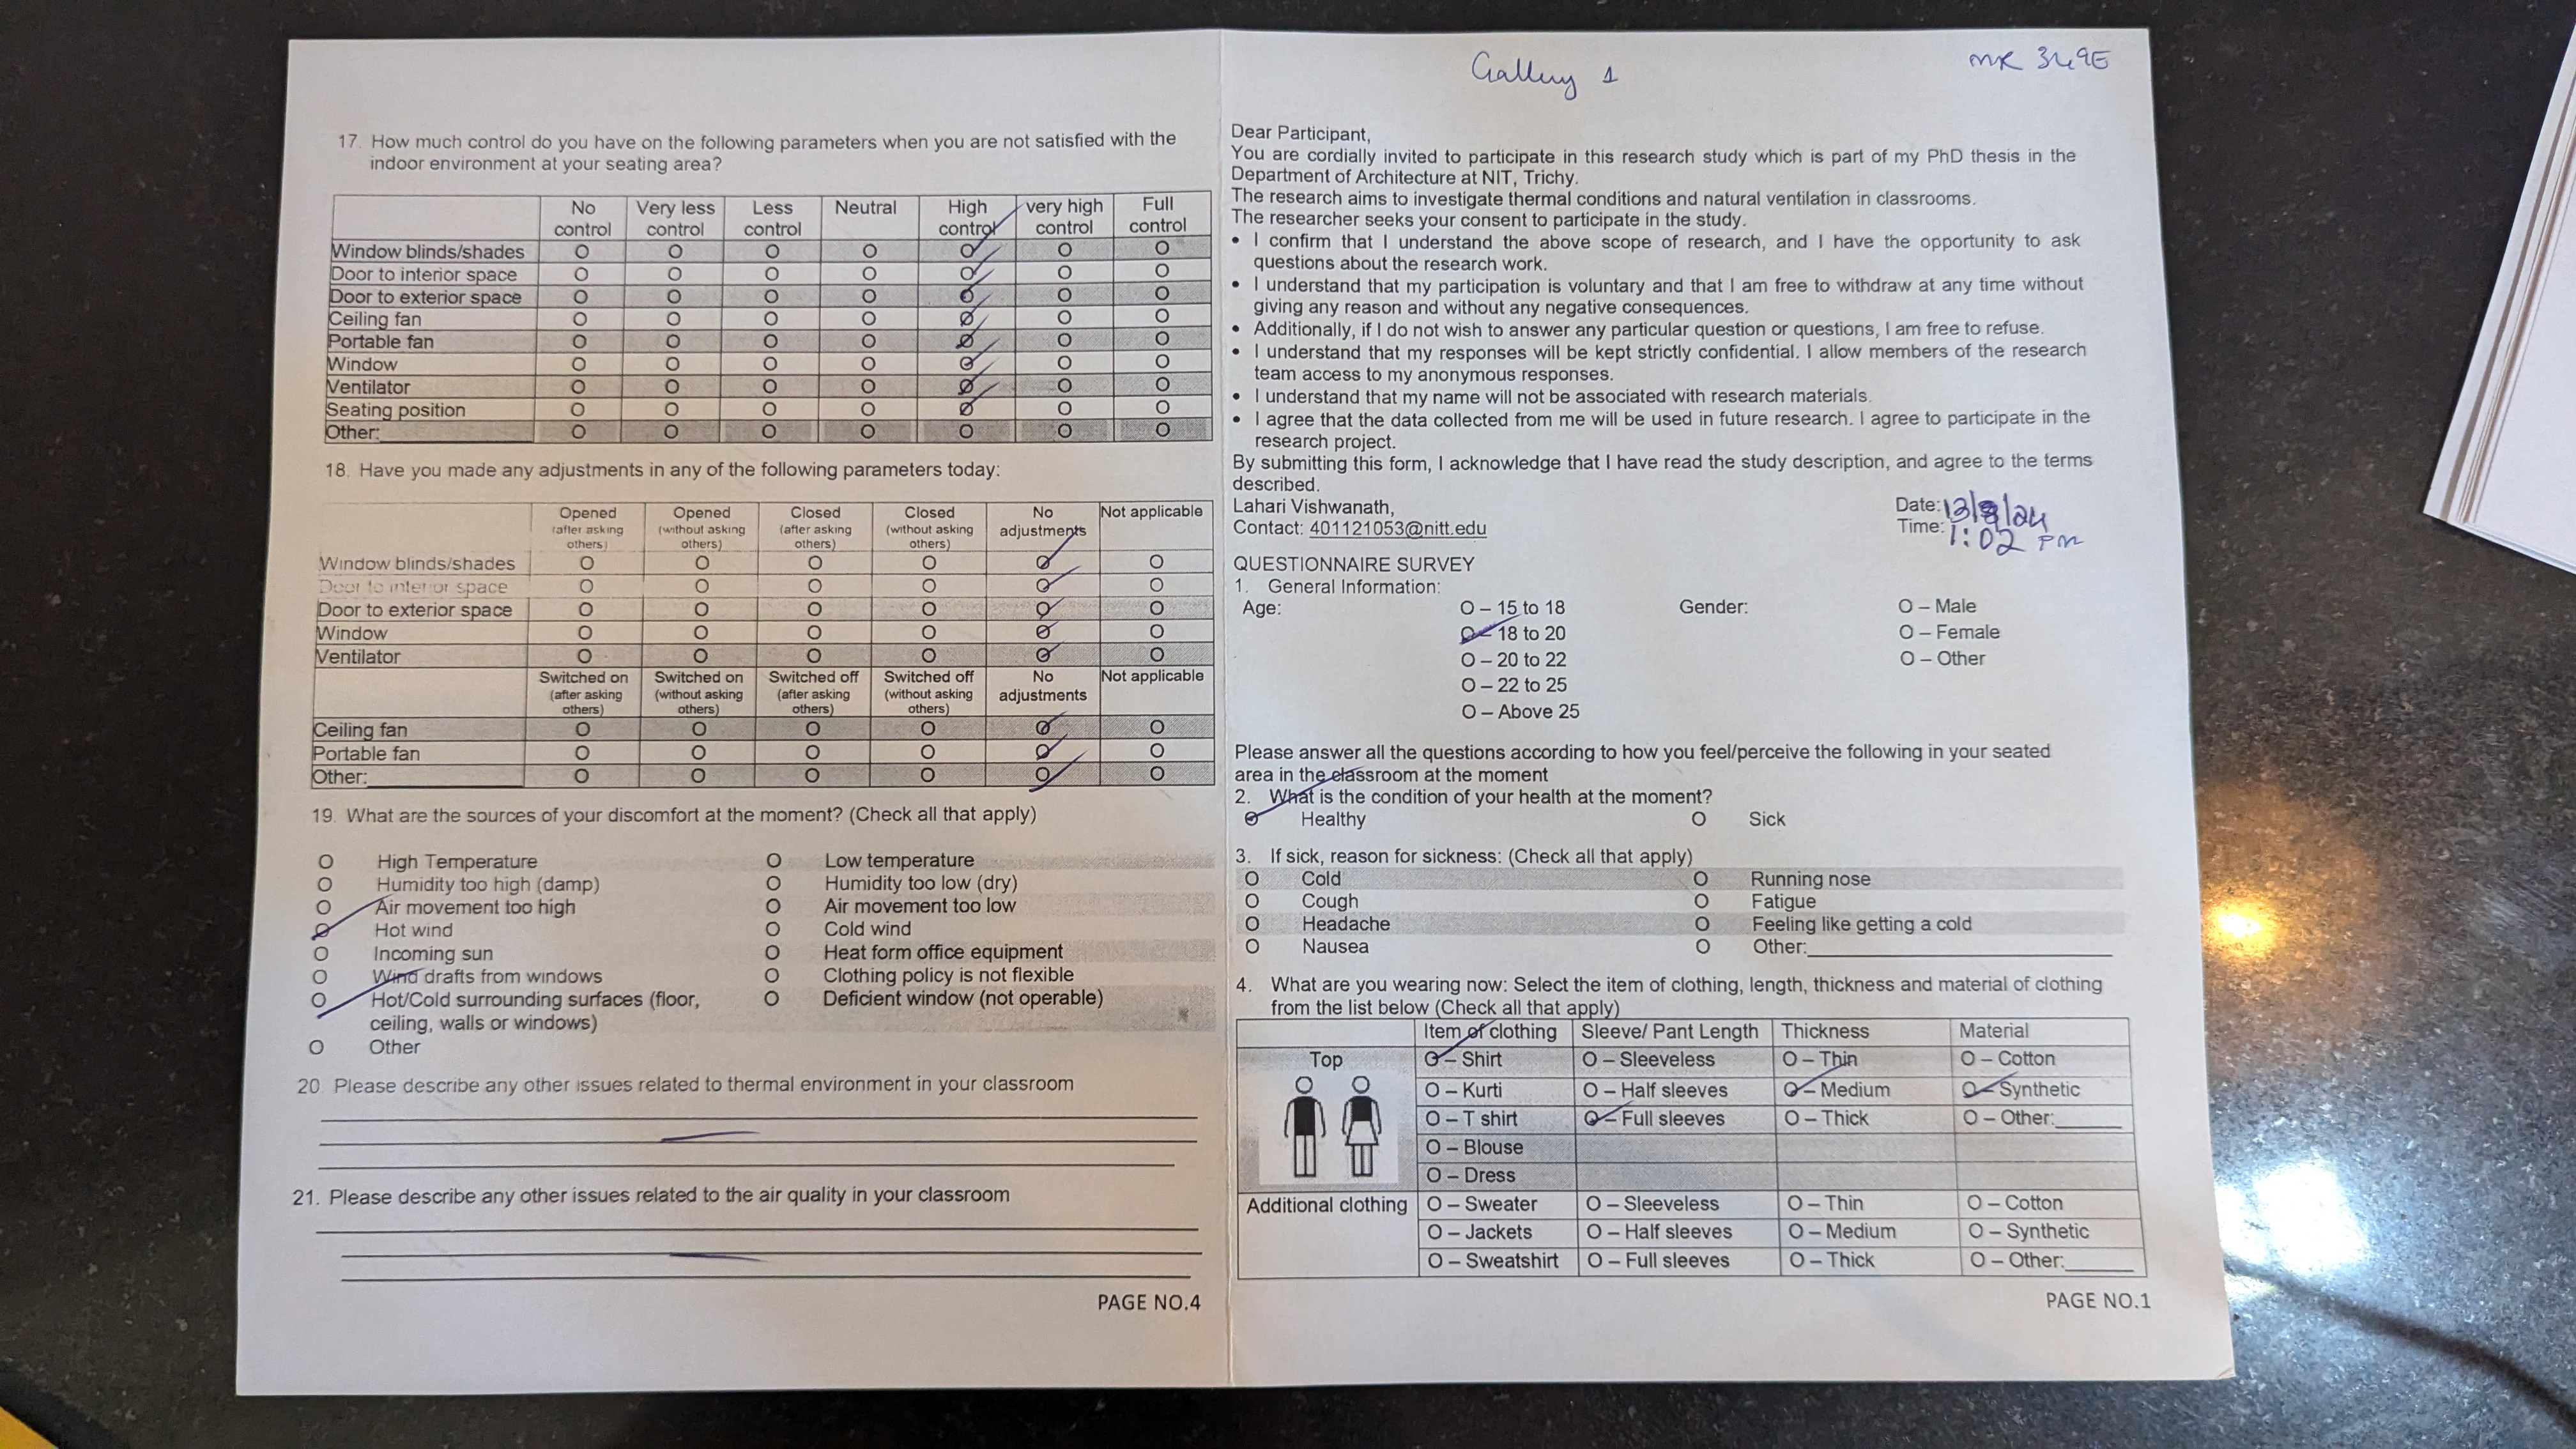 17. How much control do you have on the following parameters when you are not satisfied with the
indoor environment at your seating area?
No control Very less control Less control Neutral High control very high control Full control
Window blinds/shades O O O O O O O
Door to interior space O O O O O O O
Door to exterior space O O O O O O O
Ceiling fan O O O O O O O
Portable fan O O O O O O O
Window O O O O O O O
Ventilator O O O O O O O
Seating position O O O O O O O
Other: O O O O O O O
18. Have you made any adjustments in any of the following parameters today:
Opened (after asking others) Opened (without asking others) Closed (after asking others) Closed (without asking others) No adjustments Not applicable
Window blinds/shades O O O O O O
Door to interior space O O O O O O
Door to exterior space O O O O O O
Window O O O O O O
Ventilator O O O O O O
Switched on (after asking others) Switched on (without asking others) Switched off (after asking others) Switched off (without asking others) No adjustments Not applicable
Ceiling fan O O O O O O
Portable fan O O O O O O
Other: O O O O O O
19. What are the sources of your discomfort at the moment? (Check all that apply)
O High Temperature O Low temperature
O Humidity too high (damp) O Humidity too low (dry)
O Air movement too high O Air movement too low
O Hot wind O Cold wind
O Incoming sun O Heat form office equipment
O Wind drafts from windows O Clothing policy is not flexible
O Hot/Cold surrounding surfaces (floor, O Deficient window (not operable)
ceiling, walls or windows)
O Other
20. Please describe any other issues related to thermal environment in your classroom
21. Please describe any other issues related to the air quality in your classroom
PAGE NO.4
Gallery 1
MR 349E
Dear Participant,
You are cordially invited to participate in this research study which is part of my PhD thesis in the
Department of Architecture at NIT, Trichy.
The research aims to investigate thermal conditions and natural ventilation in classrooms.
The researcher seeks your consent to participate in the study.
• I confirm that I understand the above scope of research, and I have the opportunity to ask
questions about the research work.
• I understand that my participation is voluntary and that I am free to withdraw at any time without
giving any reason and without any negative consequences.
• Additionally, if I do not wish to answer any particular question or questions, I am free to refuse.
• I understand that my responses will be kept strictly confidential. I allow members of the research
team access to my anonymous responses.
• I understand that my name will not be associated with research materials.
• I agree that the data collected from me will be used in future research. I agree to participate in the
research project.
By submitting this form, I acknowledge that I have read the study description, and agree to the terms
described.
Lahari Vishwanath,
Contact: 401121053@nitt.edu
Date: 13/8/24
Time: 1:02 PM
QUESTIONNAIRE SURVEY
1. General Information:
Age: O – 15 to 18 Gender: O – Male
O – 18 to 20 O – Female
O – 20 to 22 O – Other
O – 22 to 25
O – Above 25
Please answer all the questions according to how you feel/perceive the following in your seated
area in the classroom at the moment
2. What is the condition of your health at the moment?
O Healthy O Sick
3. If sick, reason for sickness: (Check all that apply)
O Cold O Running nose
O Cough O Fatigue
O Headache O Feeling like getting a cold
O Nausea O Other:
4. What are you wearing now: Select the item of clothing, length, thickness and material of clothing
from the list below (Check all that apply)
Item of clothing Sleeve/ Pant Length Thickness Material
Top O – Shirt O – Sleeveless O – Thin O – Cotton
O – Kurti O – Half sleeves O – Medium O – Synthetic
O – T shirt O – Full sleeves O – Thick O – Other:
O – Blouse
O – Dress
Additional clothing O – Sweater O – Sleeveless O – Thin O – Cotton
O – Jackets O – Half sleeves O – Medium O – Synthetic
O – Sweatshirt O – Full sleeves O – Thick O – Other:
PAGE NO.1